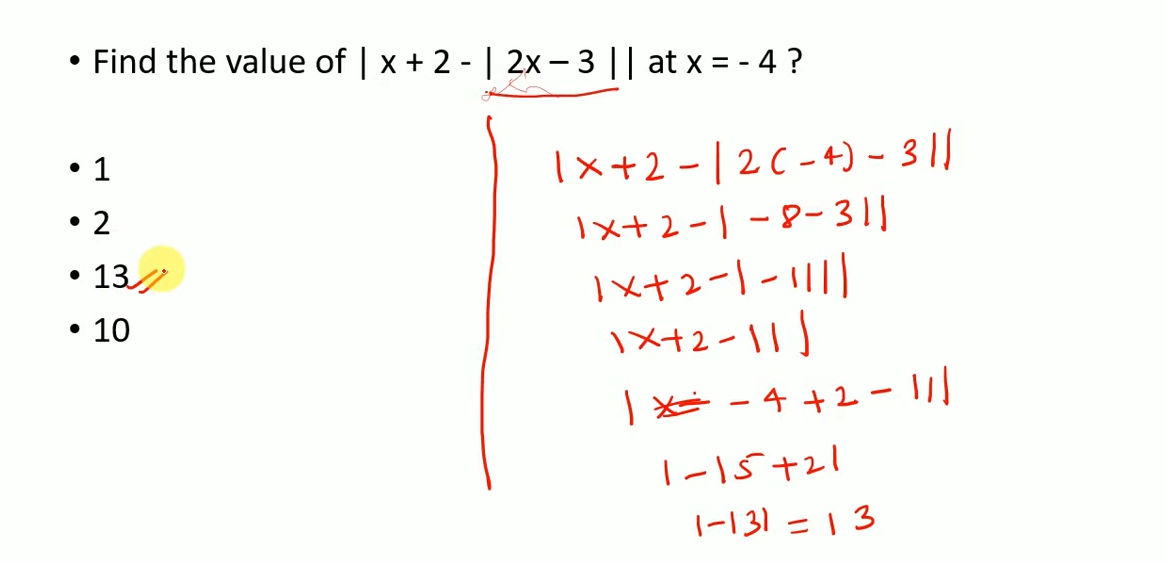 • Find the value of | x + 2 - | 2x – 3 || at x = - 4 ?
• 1
• 2
• 13
• 10
|x+2-|2(-4)-3||
|x+2-|-8-3||
|x+2-|-11||
|x+2-11|
|x= -4+2-11|
|-15+2|
|-13| = 13